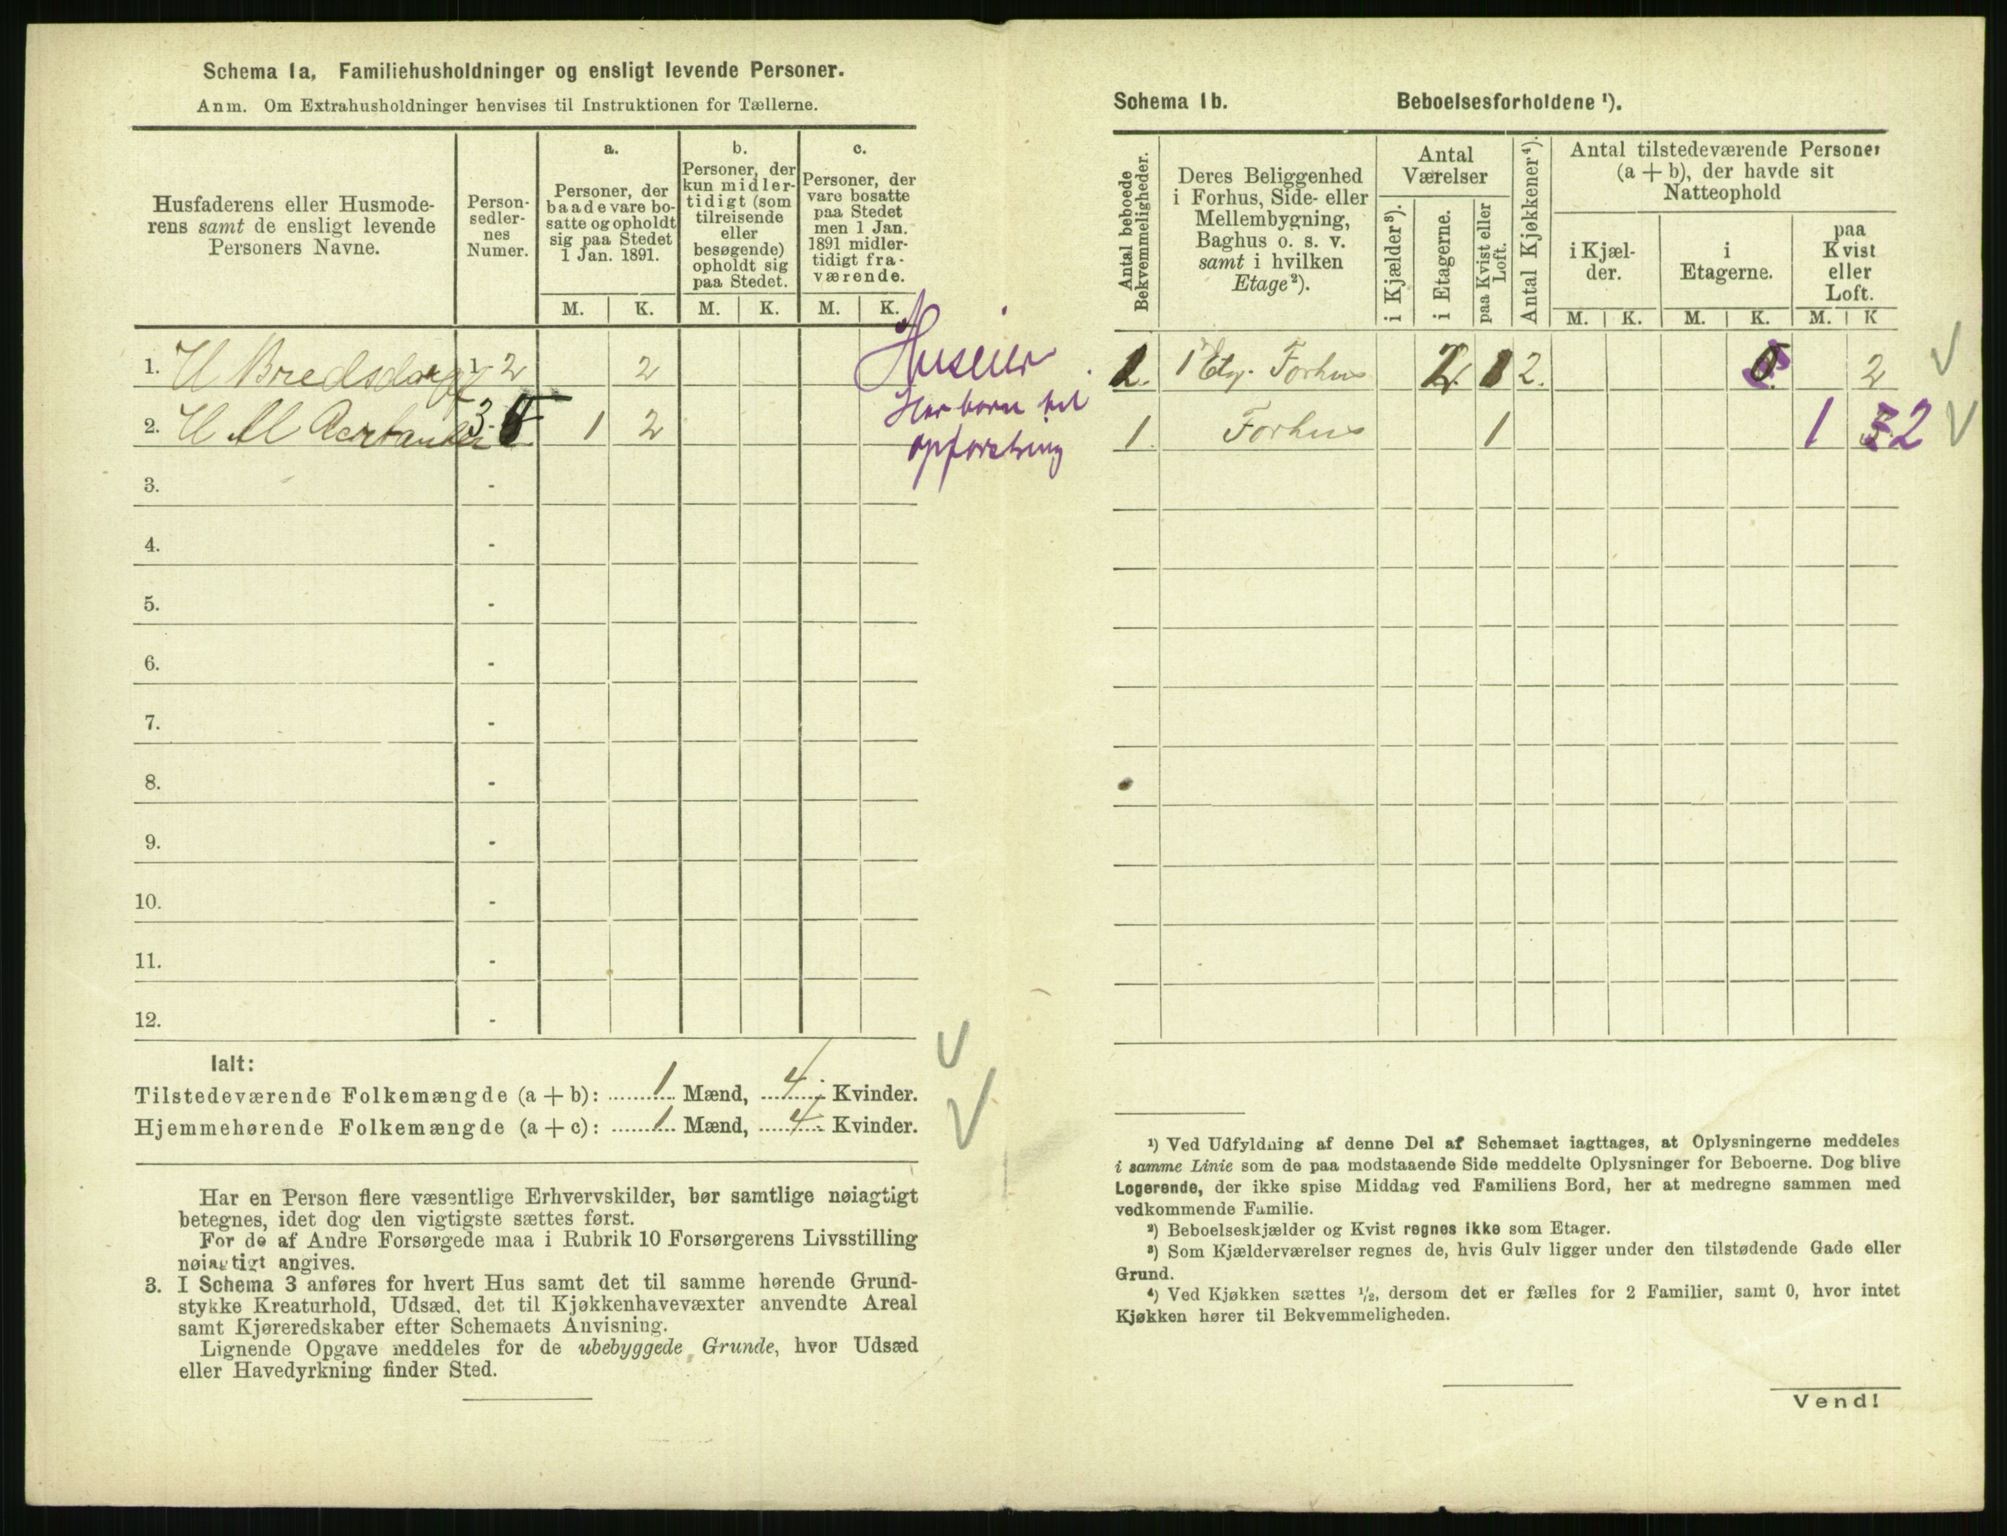 Schema 1a, Familiehusholdninger og ensligt levende Personer.
Anm. Om Extrahusholdninger henvises til Instruktionen for Tællerne.
Husfaderens eller Husmode-
rens samt de ensligt levende
Personers Navne.
Person-
sedler-
nes
Numer.
a.
Personer, der
baade vare bo-
satte og opholdt
sig paa Stedet
1 Jan. 1891.
b.
Personer, der
kun midler-
tidigt (som
tilreisende
eller
besøgende)
opholdt sig
paa Stedet.
c.
Personer, der
vare bosatte
paa Stedet
men 1 Jan.
1891 midler-
tidigt fra-
værende.
M. K. M. K. M. K.
1. H Bredsdorff 1-2 2
2. H M 3- 1 2
Huseier
Har barn til
opfostring
3. -
4. -
5. -
6. -
7. -
8. -
9. -
10. -
11. -
12. -
Ialt:
Tilstedeværende Folkemængde (a + b): 1 Mænd, 4 Kvinder.
Hjemmehørende Folkemængde (a + c): 1 Mænd, 4 Kvinder.
Har en Person flere væsentlige Erhvervskilder, bør samtlige nøiagtigt
betegnes, idet dog den vigtigste sættes først.
For de af Andre Forsørgede maa i Rubrik 10 Forsørgerens Livsstilling
nøiagtigt angives.
3. I Schema 3 anføres for hvert Hus samt det til samme hørende Grund-
stykke Kreaturhold, Udsæd, det til Kjøkkenhavevæxter anvendte Areal
samt Kjøreredskaber efter Schemaets Anvisning.
Lignende Opgave meddeles for de ubebyggede Grunde, hvor Udsæd
eller Havedyrkning finder Sted.
Schema 1b. Beboelsesforholdene ¹).
Antal beboede
Bekvemmeligheder.
Deres Beliggenhed
i Forhus, Side- eller
Mellembygning,
Baghus o. s. v.
samt i hvilken
Etage²).
Antal
Værelser
i Kjælder³).
i Etagerne.
paa Kvist eller
Loft.
Antal Kjøkkener⁴).
Antal tilstedeværende Personer
(a + b), der havde sit
Natteophold
i Kjæl-
der.
i
Etagerne.
paa
Kvist
eller
Loft.
M. K. M. K. M. K
1. 1 Etg. Forhus 2. 1 2. 2
1. Forhus 1 1 2
¹) Ved Udfyldning af denne Del af Schemaet iagttages, at Oplysningerne meddeles
i samme Linie som de paa modstaaende Side meddelte Oplysninger for Beboerne. Dog blive
Logerende, der ikke spise Middag ved Familiens Bord, her at medregne sammen med
vedkommende Familie.
²) Beboelseskjælder og Kvist regnes ikke som Etager.
³) Som Kjælderværelser regnes de, hvis Gulv ligger under den tilstødende Gade eller
Grund.
⁴) Ved Kjøkken sættes ½, dersom det er fælles for 2 Familier, samt 0, hvor intet
Kjøkken hører til Bekvemmeligheden.
Vend!